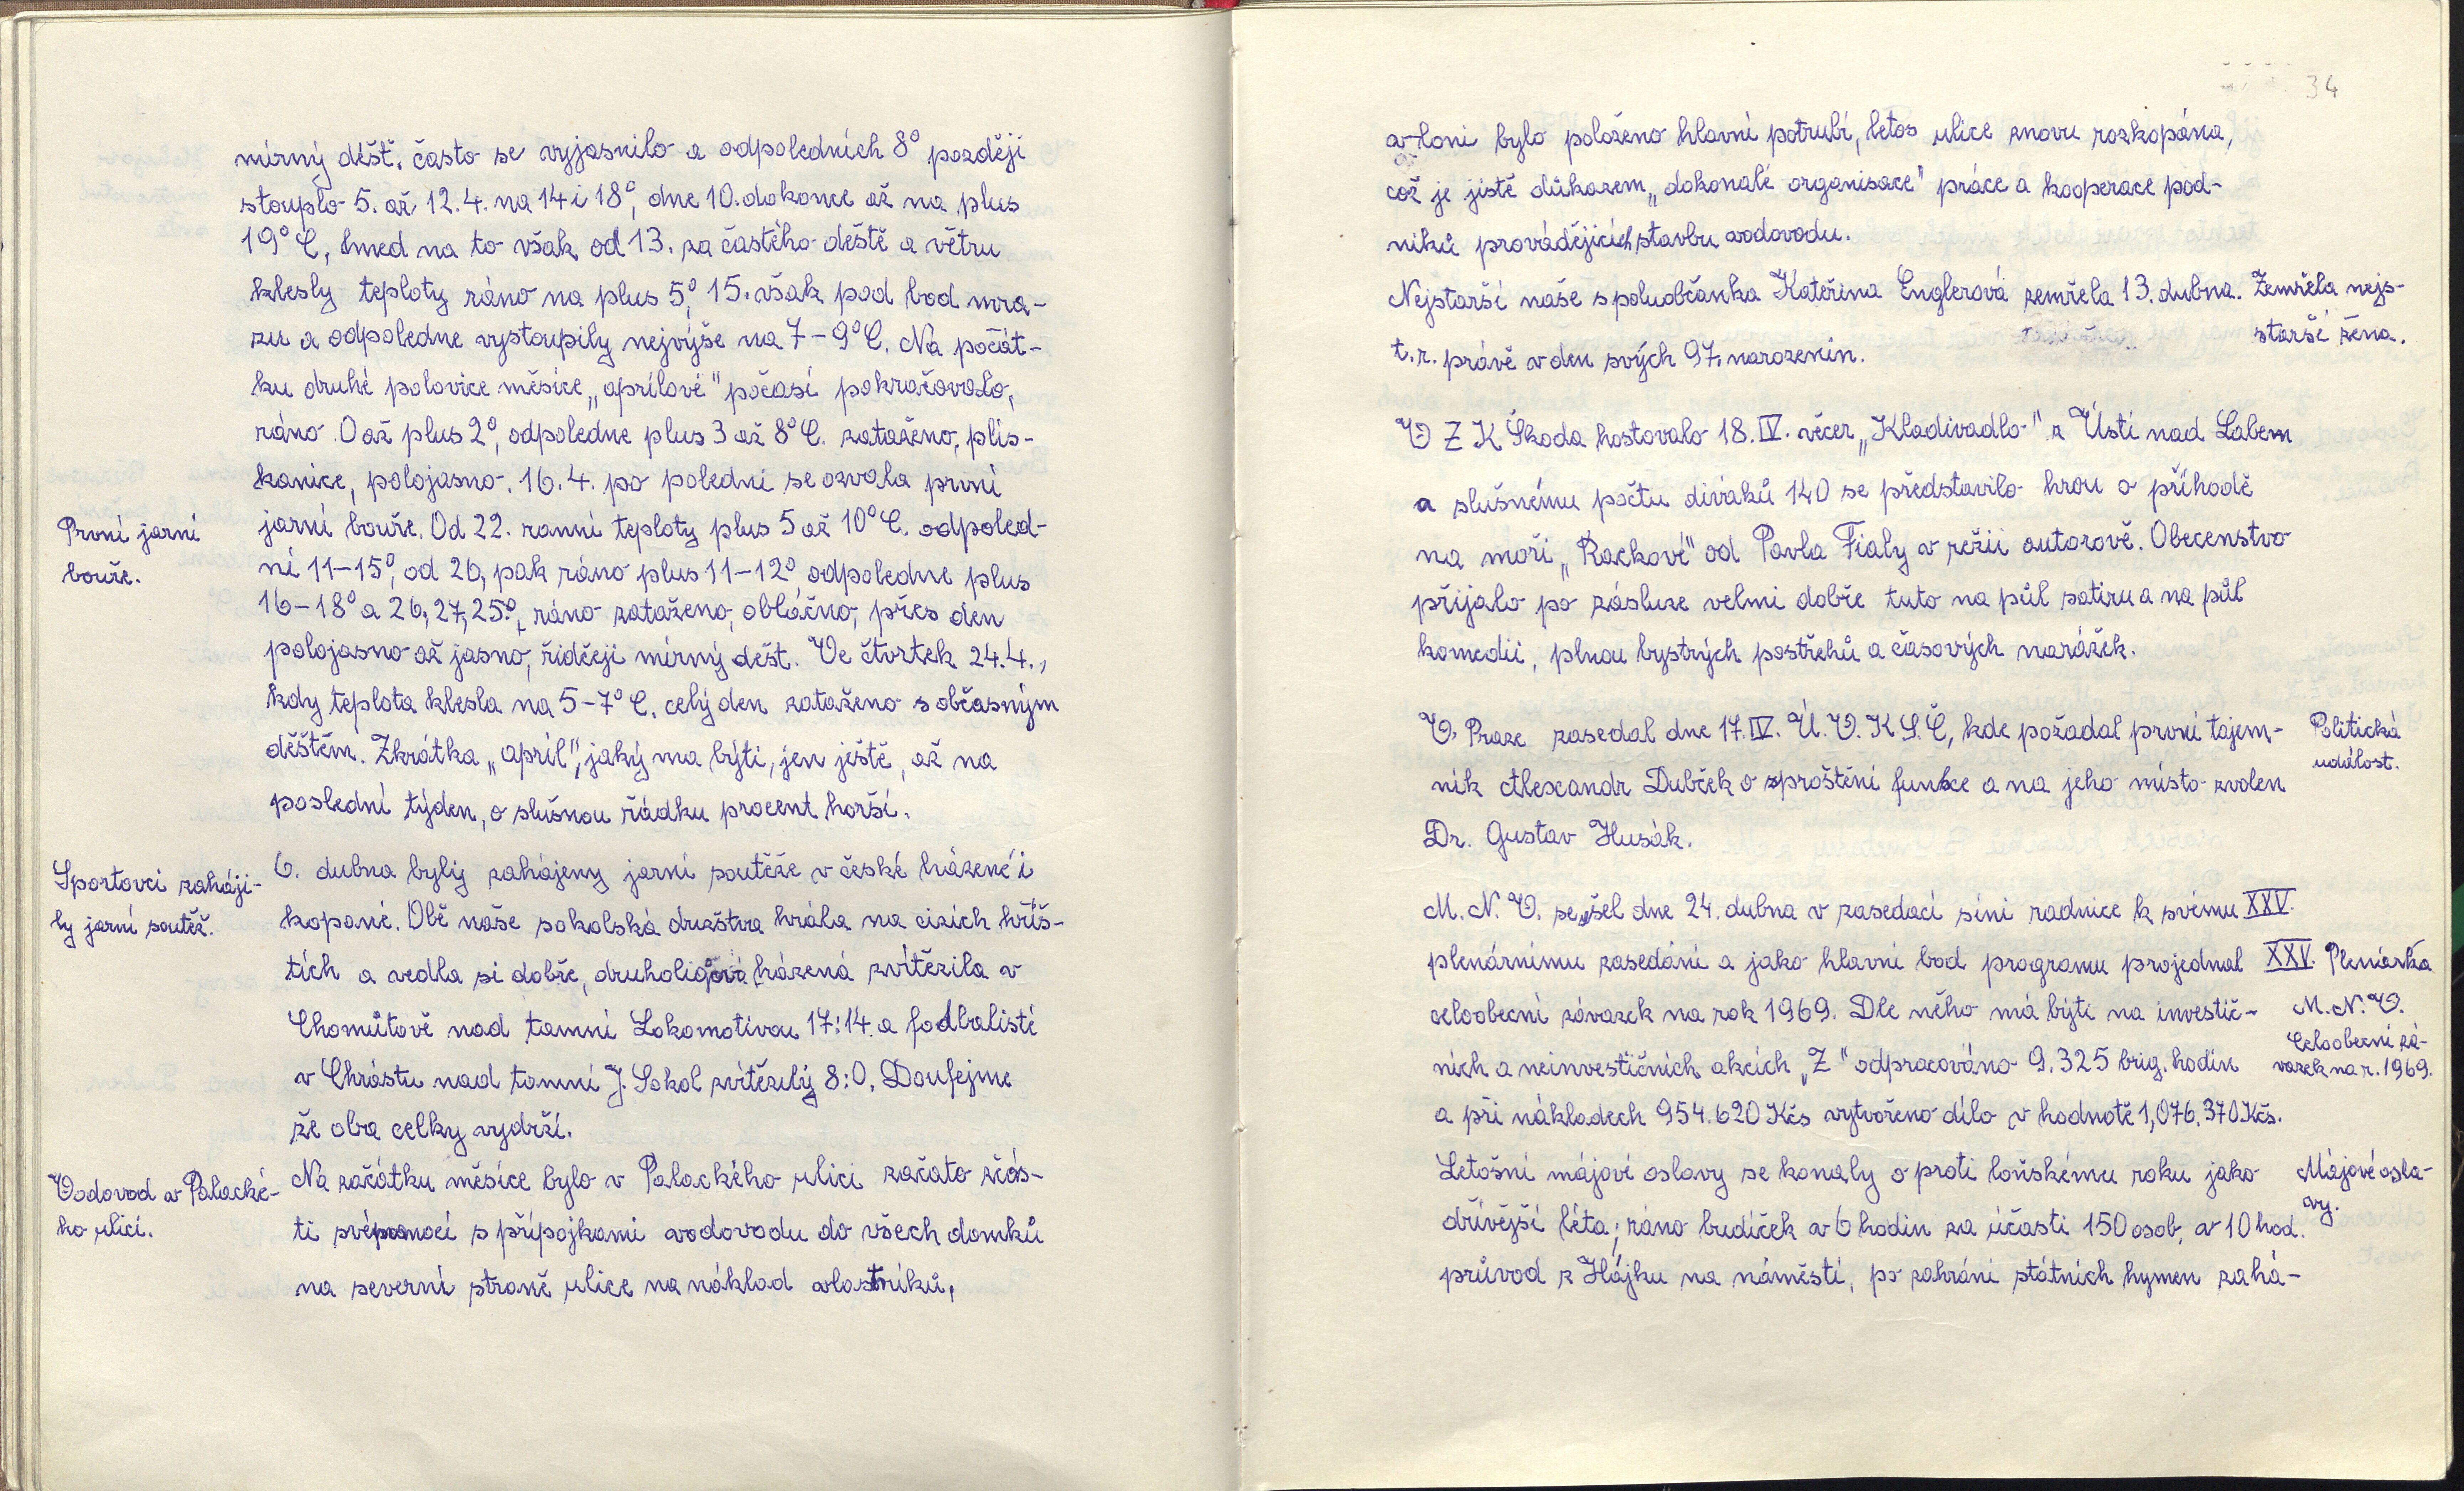 mírný déšť. často se vyjasnilo a odpoledních 8° později
stouplo 5. až 12.4. na 14 i 18°, dne 10. dokonce až na plus
19°C, hned na to však od 13. za častého deště a větru
klesly teploty ráno na plus 5°, 15. však pod bod mra-
zu a odpoledne vystoupily nejvýše na 7-9°C. Na počát-
ku druhé polovice měsíce „aprílové" počasí pokračovalo,
ráno 0 až plus 2°, odpoledne plus 3 až 8°C. zataženo, plis-
kanice, polojasno. 16.4. po poledni se ozvala první
První jarní
bouře.
jarní bouře. Od 22. ranní teploty plus 5 až 10°C. odpoled-
ní 11-15°, od 26, pak ráno plus 11-12° odpoledne plus
16-18° a 26, 27, 25°, ráno zataženo, oblačno, přes den
polojasno až jasno, řidčeji mírný déšt. Ve čtvrtek 24.4.,
kdy teplota klesla na 5-7°C. celý den zataženo s občasným
děštěm. Zkrátka „apríl", jaký ma býti, jen ještě, až na
poslední týden, o slušnou řádku procent horší.
Sportovci zaháji-
ly jarní soutěž.
6. dubna byly zahájeny jarní soutěže v české házené i
kopané. Obě naše sokolská družstva hrála na cizích hřiš-
tích a vedla si dobře, druholigová házená zvítězila v
Chomůtově nad tamní Lokomotivou 17:14 a fodbalisté
v Chrástu nad tamní J. Sokol zvítězily 8:0. Doufejme
že oba celky vydrží.
Vodovod v Palacké-
ho ulici.
Na začátku měsíce bylo v Palackého ulici začato zčás-
ti svépomocí s přípojkami vodovodu do všech domků
na severní straně ulice na náklad vlastníků,
34
v loni bylo položeno hlavní potrubí, letos ulice znovu rozkopána,
což je jistě důkazem „dokonalé organisace" práce a kooperace pod-
niků provádějících stavbu vodovodu.
Nejstarší naše spoluobčanka Kateřina Englerová zemřela 13. dubna.
t.r. právě v den svých 97. narozenin.
Zemřela nejs-
starší žena.
V Z K Škoda hostovalo 18.IV. večer „Kladivadlo" z Ústí nad Labem
a slušnému počtu diváků 140 se představilo hrou o příhodě
na moři „Rackové" od Pavla Fialy v režii autorově. Obecenstvo
přijalo po zásluze velmi dobře tuto na půl satiru a na půl
komedii, plnou bystrých postřehů a časových narážek.
V Praze zasedal dne 17.IV. Ú.V.K.S.Č, kde požádal první tajem-
ník Alexandr Dubček o zproštění funkce a na jeho místo zvolen
Dr. Gustav Husák.
Politická
událost.
M.N.V. sešel dne 24. dubna v zasedací síni radnice k svému XXV.
plenárnímu zasedání a jako hlavní bod programu projednal
celoobecní závazek na rok 1969. Dle něho má býti na investič-
ních a neinvestičních akcích „Z" odpracováno 9.325 brig. hodin
a při nákladech 954.620 Kčs vytvořeno dílo v hodnotě 1,076.370 Kčs.
XXV. Plenárka
M.N.V.
Celoobecní zá-
vazek na r. 1969.
Letošní májové oslavy se konaly oproti loňskému roku jako
dřívější léta; ráno budíček v 6 hodin za účasti 150 osob, v 10 hod.
průvod z Hájku na náměstí, po zahrání státních hymen zahá-
Májové osla-
vy.